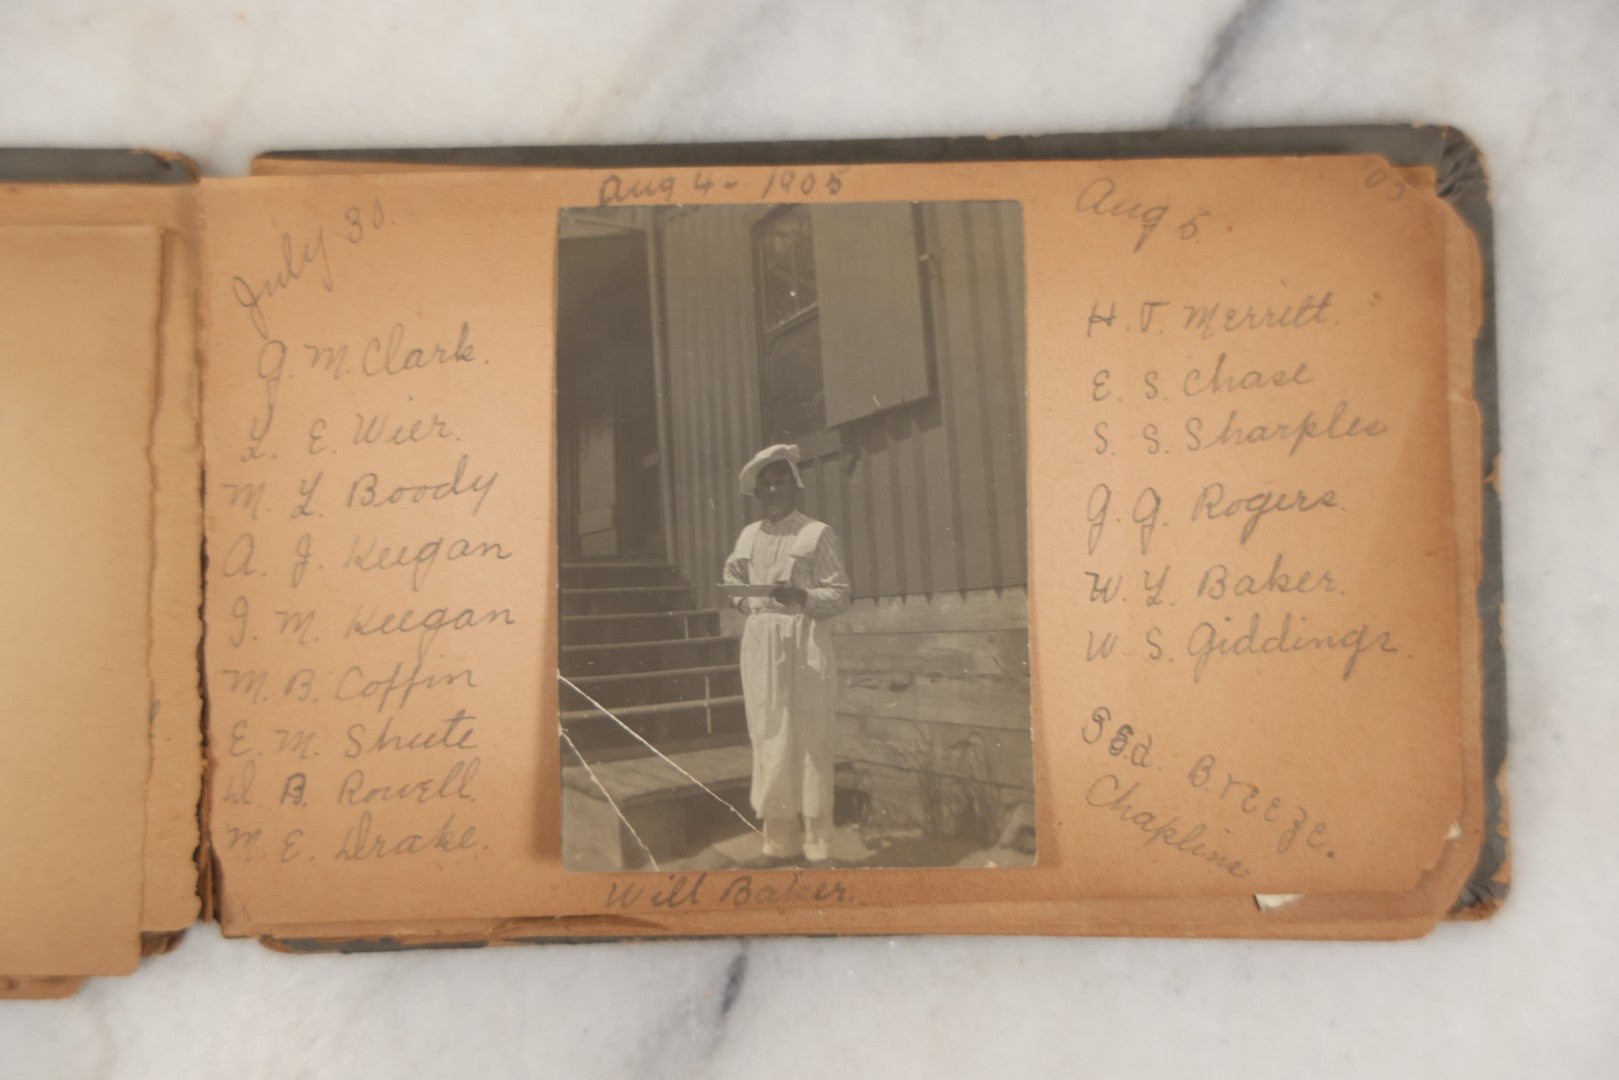 July 30.
G. M. Clark.
L. E. Wier.
M. L. Boody
A. J. Keegan
I. M. Keegan
M. B. Coffin
E. M. Shute
D. B. Rowell.
M. E. Drake.
Aug 4 - 1905
Will Baker.
Aug 5.
05
H. T. Merritt.
E. S. Chase
S. S. Sharples
G. G. Rogers.
W. L. Baker.
W. S. Giddings.
Breeze.
Chaplins